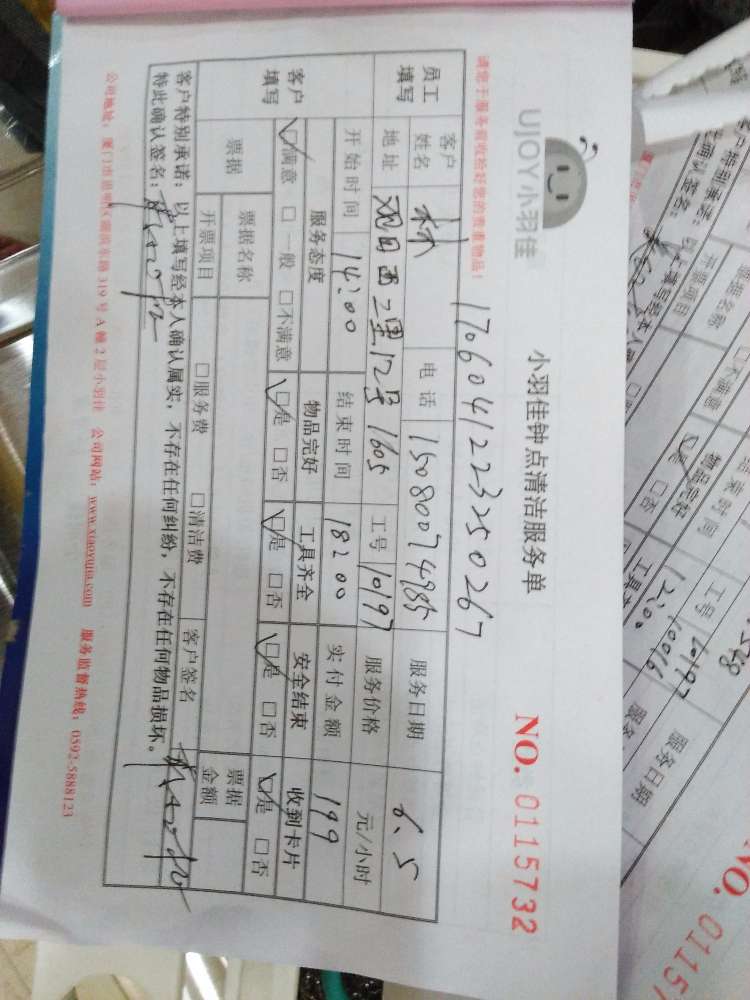 UJOY小羽佳
小羽佳钟点清洁服务单
NO. 0115732
请您于服务前收拾好您的贵重物品!
1706041223250267
员工填写
客户姓名 林 电话 15080074985 服务日期 6.5
地址 观日西二里12号1605 工号 10197 服务价格 元/小时
开始时间 14:00 结束时间 18:00 实付金额 199
客户填写
服务态度 物品完好 工具齐全 安全结束 收到卡片
☑满意 □一般 □不满意 ☑是 □否 ☑是 □否 ☑是 □否 ☑是 □否
票据 票据名称 票据金额
开票项目 □服务费 □清洁费 客户签名
客户特别承诺:以上填写经本人确认属实,不存在任何纠纷,不存在任何物品损坏。
特此确认签名:
公司地址:厦门市思明区湖滨东路319号A幢2层小羽佳 公司网站:www.xiaoyujia.com 服务监督热线:0592-5888123
NO. 01157
服务日期
10197
10016
工号
12:00
物品完好
□不满意
票据名称
开票项目